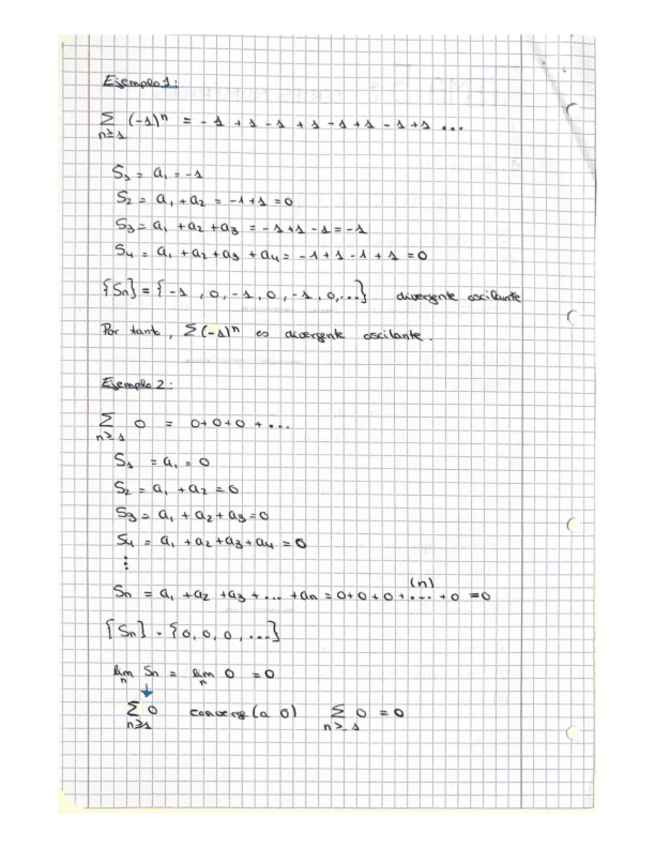 Ejemplo 1:
∑ (-1)ⁿ = - 1 + 1 - 1 + 1 - 1 + 1 - 1 + 1 ...
n≥1
S₁ = a₁ = -1
S₂ = a₁ + a₂ = -1 + 1 = 0
S₃ = a₁ + a₂ + a₃ = -1 + 1 - 1 = -1
S₄ = a₁ + a₂ + a₃ + a₄ = -1 + 1 - 1 + 1 = 0
{Sn} = {-1, 0, -1, 0, -1, 0, ...} divergente oscilante
Por tant, ∑(-1)ⁿ es divergente oscilante.
Ejemplo 2:
∑ 0 = 0+0+0 + ...
n≥1
S₁ = a₁ = 0
S₂ = a₁ + a₂ = 0
S₃ = a₁ + a₂ + a₃ = 0
S₄ = a₁ + a₂ + a₃ + a₄ = 0
⋮
(n)
Sn = a₁ + a₂ + a₃ + ... + an = 0+0+0 + ... + 0 = 0
{Sn} = {0, 0, 0, ...}
lim Sn = lim 0 = 0
n n
↓
∑ 0 converg (a 0) ∑ 0 = 0
n≥1 n≥1